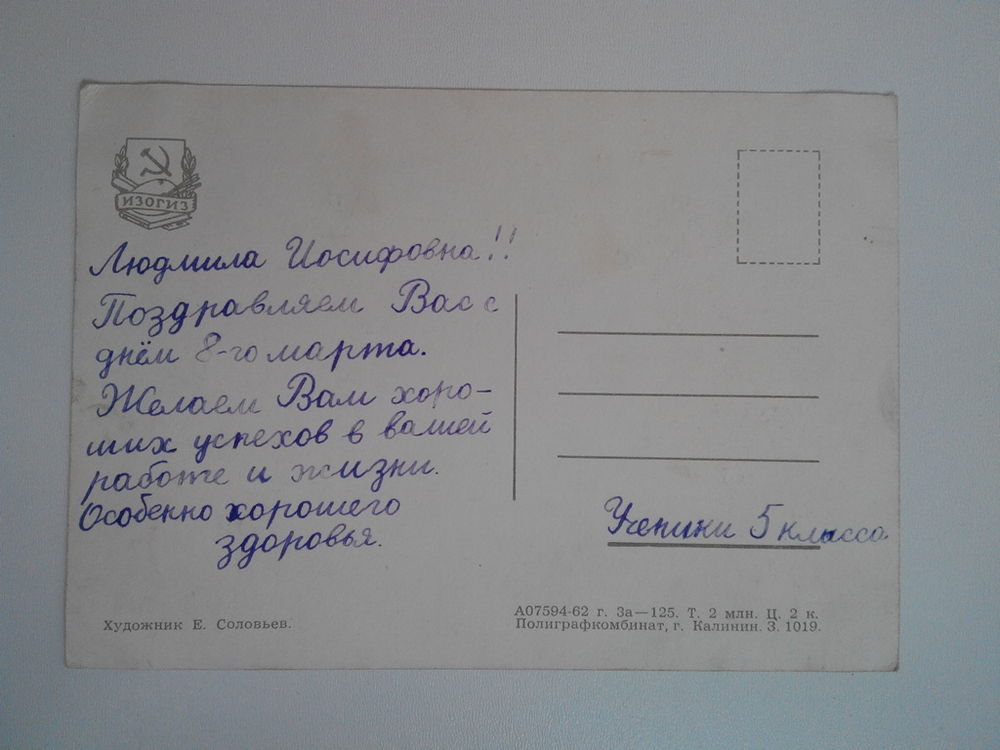 ИЗОГИЗ
Людмила Иосифовна!!
Поздравляем Вас с
днём 8-го марта.
Желаем Вам хоро-
ших успехов в вашей
работе и жизни.
Особенно хорошего
здоровья.
Ученики 5 класса
Художник Е. Соловьев.
А07594-62 г. За—125. Т. 2 млн. Ц. 2 к.
Полиграфкомбинат, г. Калинин. З. 1019.